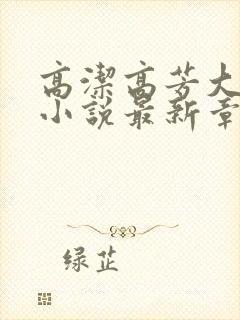 高洁高芳大
小说最新章
绿芷